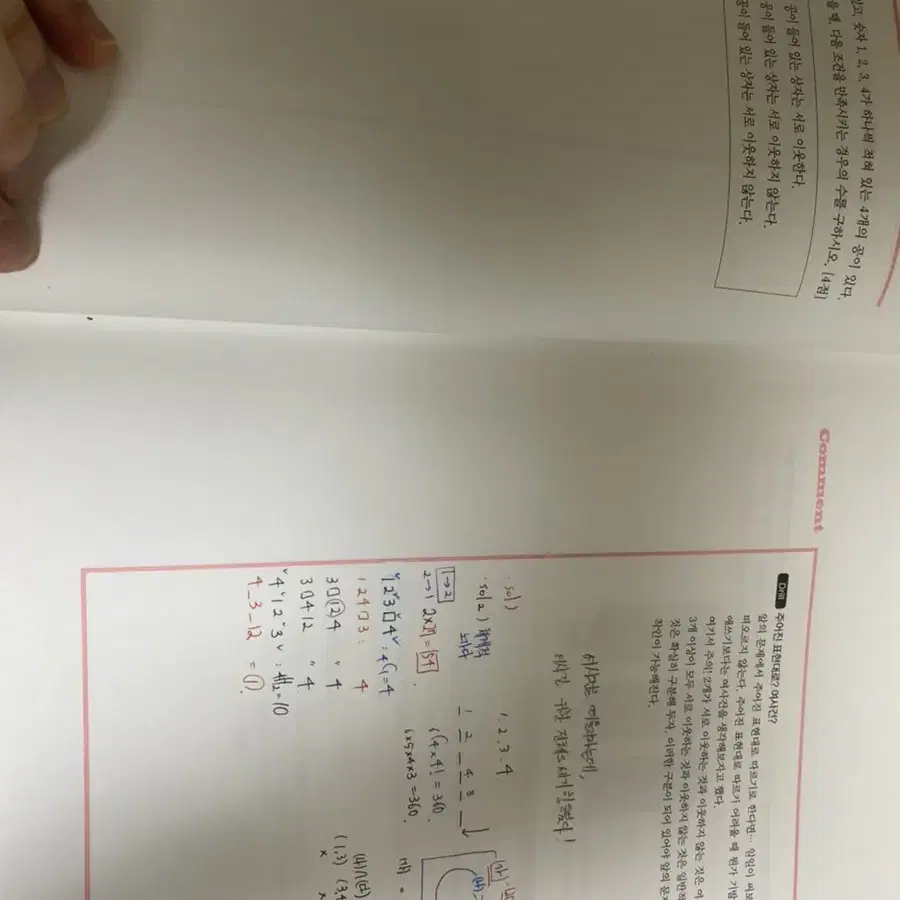 있고, 숫자 1, 2, 3, 4가 하나씩 적혀 있는 4개의 공이 있다.
을 때, 다음 조건을 만족시키는 경우의 수를 구하시오. [4점]
공이 들어 있는 상자는 서로 이웃한다.
공이 들어 있는 상자는 서로 이웃하지 않는다.
공이 들어 있는 상자는 서로 이웃하지 않는다.
Comment
Drill 주어진 표현대로? 여사건?
앞의 문제에서 주어진 표현대로 따르기로 한다면… 일일이 써보
떠오르지 않는다. 주어진 표현대로 따르기 어려울 때 뭔가 기발
애쓰기보다는 여사건을 생각해보자고 했다.
여기서 주의! 2개가 서로 이웃하는 것과 이웃하지 않는 것은 여
3개 이상이 모두 서로 이웃하는 것과 이웃하지 않는 것은 일반적
것은 확실히 구분해 두자. 이러한 구분이 되어 있어야 앞의 문제
착안이 가능해진다.
여사건은 떠올리는데,
·sol)
1. 2. 3. 4
·sol 2)
1 2 _ 4 3 _
1→2
2→1
2×27=54
6C4×4! = 360.
6×5×4×3 = 360.
1 2 3 □ 4 : 4C1 = 4
1 2 4 □ 3 : 4
3 □ (12) 4 " 4
3 □ 4 1 2 " 4
4 1 2 3 : 4H2 = 10
4 _ 3 _ 12 = 1.
(나)∩(다)
(1,3) (3,4
x x